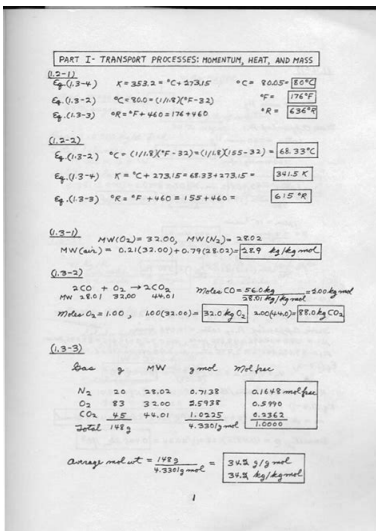 PART I- TRANSPORT PROCESSES: MOMENTUM, HEAT, AND MASS
(1.2-1)
Eq.(1.3-4) K = 353.2 = °C + 273.15 °C = 80.05 = 80°C
Eq.(1.3-2) °C = 80.0 = (1/1.8)(°F-32) °F = 176°F
Eq.(1.3-3) °R = °F + 460 = 176 + 460 °R = 636°R
(1.2-2)
Eq.(1.3-2) °C = (1/1.8)(°F-32) = (1/1.8)(155-32) = 68.33°C
Eq.(1.3-4) K = °C + 273.15 = 68.33 + 273.15 = 341.5 K
Eq.(1.3-3) °R = °F + 460 = 155 + 460 = 615 °R
(1.3-1)
MW(O2) = 32.00, MW(N2) = 28.02
MW(air) = 0.21(32.00) + 0.79(28.02) = 28.9 kg/kg mol
(1.3-2)
2CO + O2 → 2CO2 Moles CO = 56.0 kg = 2.00 kg mol
MW 28.01 32.00 44.01 28.01 kg/kg mol
Moles O2 = 1.00, 1.00(32.00) = 32.0 kg O2 2.00(44.0) = 88.0 kg CO2
(1.3-3)
Gas g MW g mol Mol frac
N2 20 28.02 0.7138 0.1648 mol frac
O2 83 32.00 2.5938 0.5990
CO2 45 44.01 1.0225 0.2362
Total 148g 4.3301 g mol 1.0000
Average mol wt = 148 g = 34.2 g/g mol
4.3301 g mol 34.2 kg/kg mol
1